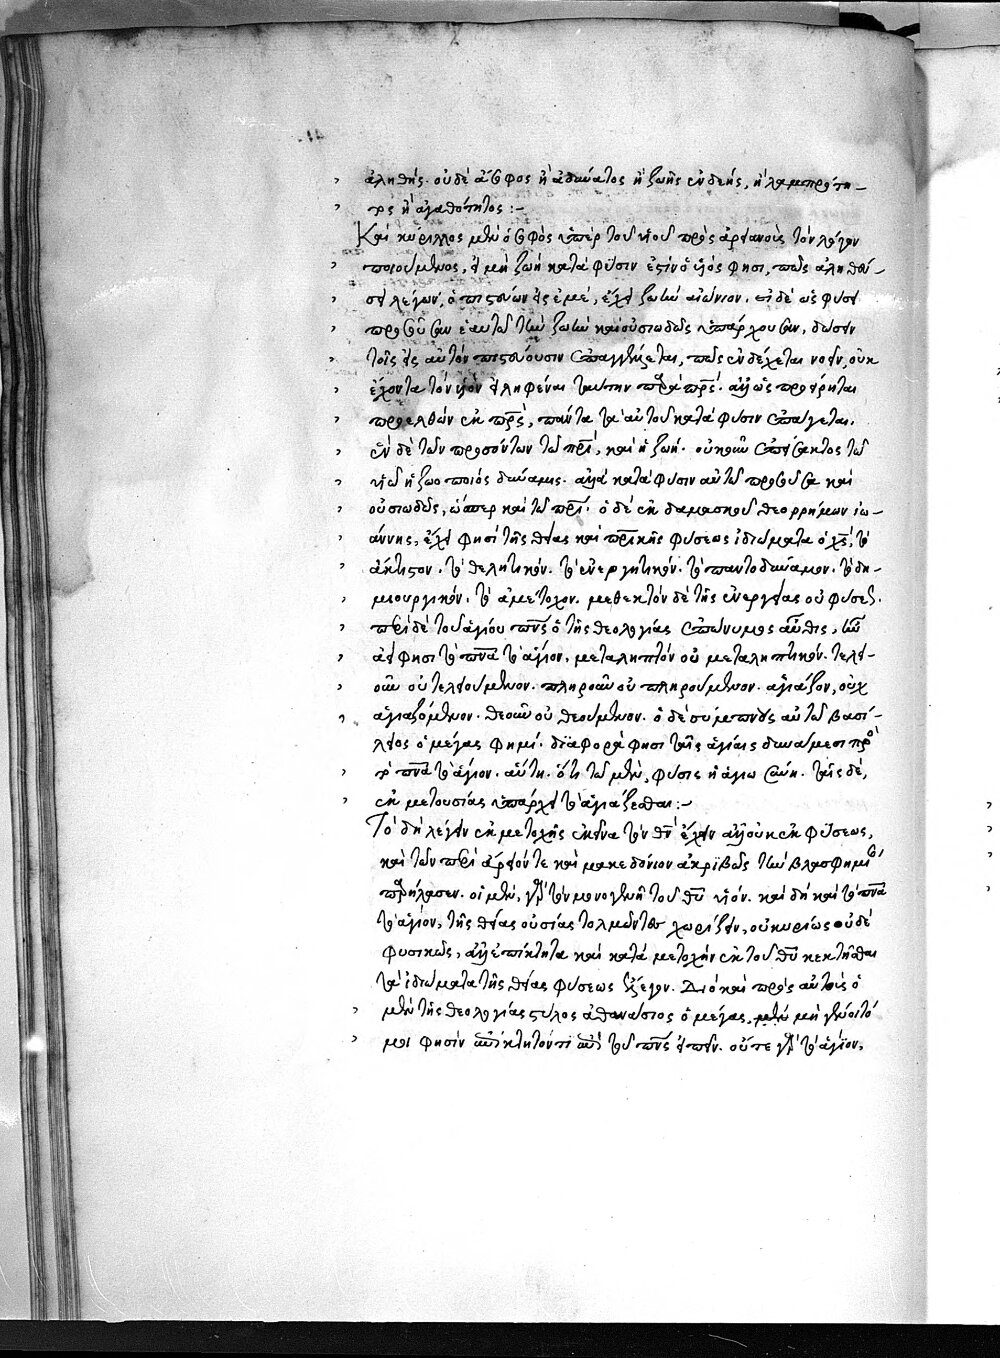 ἀληθής. οὐδὲ ἄσοφος ἢ ἀδύνατος ἢ ζωῆς ἐνδεής, ἢ λαμπρότη-
τος ἢ ἀγαθότητος :-
Καὶ κύριλλος μὲν ὁ σοφὸς ὑπὲρ τοῦ υἱοῦ πρὸς ἀρειανοὺς τὸν λόγον
ποιούμενος, εἰ μὴ ζωὴ κατὰ φύσιν ἐστὶν ὁ υἱός φησι, πῶς ἀληθεύ-
σει λέγων, ὁ πιστεύων εἰς ἐμέ, ἔχει ζωὴν αἰώνιον. εἰ δὲ ὡς φύσει
προσοῦσαν ἑαυτῷ τὴν ζωὴν καὶ οὐσιωδῶς ὑπάρχουσαν, δώσειν
τοῖς εἰς αὐτὸν πιστεύουσιν ἐπαγγέλλεται, πῶς ἐνδέχεται νοεῖν, οὐκ
ἔχοντα τὸν υἱὸν εἰληφέναι ταύτην παρὰ πρς. ἀλλ' ὡς προείρηται
προελθὼν ἐκ πρς, πάντα τὰ αὐτοῦ κατὰ φύσιν ἐπάγεται.
ἓν δὲ τῶν προσόντων τῷ πρι, καὶ ἡ ζωή. οὐκοῦν ἐπείσακτος τῷ
υἱῷ ἡ ζωοποιὸς δύναμις. ἀλλὰ κατὰ φύσιν αὐτῷ προσοῦσα καὶ
οὐσιωδῶς, ὥσπερ καὶ τῷ πρι. ὁ δὲ ἐκ δαμασκοῦ θεορρήμων ἰω-
άννης, ἔχει φησὶ τῆς θείας καὶ πρικῆς φύσεως ἰδιώματα ὁ χς, τὸ
ἄκτιστον. τὸ θελητικόν. τὸ ἐνεργητικόν. τὸ παντοδύναμον. τὸ δη-
μιουργικόν. τὸ ἀμέτοχον. μεθεκτὸν δὲ τῆς ἐνεργείας οὐ φύσει.
περὶ δὲ τοῦ ἁγίου πνς ὁ τῆς θεολογίας ἐπώνυμος αὖθις, ἦν
ἀεί φησι τὸ πνα τὸ ἅγιον, μεταληπτὸν οὐ μεταληπτικόν. τελει-
οῦν οὐ τελειούμενον. πληροῦν οὐ πληρούμενον. ἁγιάζον, οὐχ
ἁγιαζόμενον. θεοῦν οὐ θεούμενον. ὁ δὲ σύμπνους αὐτῷ βασί-
λειος ὁ μέγας φημί. διαφορά φησι ταῖς ἁγίαις δυνάμεσι πρὸς
τὸ πνα τὸ ἅγιον. αὕτη. ὅτι τῷ μὲν, φύσις ἡ ἁγιωσύνη. ταῖς δέ,
ἐκ μετουσίας ὑπάρχει τὸ ἁγιάζεσθαι :-
Τὸ δὴ λέγειν ἐκ μετοχῆς ἐκεῖνα τὸν θν ἔχειν ἀλλ' οὐκ ἐκ φύσεως,
καὶ τῶν περὶ ἄρειόν τε καὶ μακεδόνιον ἀκριβῶς τὴν βλασφημίαν
παρήλασεν. οἱ μὲν, γὰρ τὸν μονογενῆ τοῦ θυ υἱόν. καὶ δὴ καὶ τὸ πνα
τὸ ἅγιον, τῆς θείας οὐσίας τολμῶντες χωρίζειν, οὐ κυρίως οὐδὲ
φυσικῶς, ἀλλ' ἐπίκτητα καὶ κατὰ μετοχὴν ἐκ τοῦ θυ κεκτῆσθαι
τὰ ἰδιώματα τῆς θείας φύσεως ἔλεγον. Διὸ καὶ πρὸς αὐτοὺς ὁ
μὲν τῆς θεολογίας στύλος ἀθανάσιος ὁ μέγας, μὴ γένοιτό
μοι φησὶν ἐπίκτητόν τι ἐπὶ τοῦ πνς εἰπεῖν. οὔτε γὰρ τὸ ἅγιον,